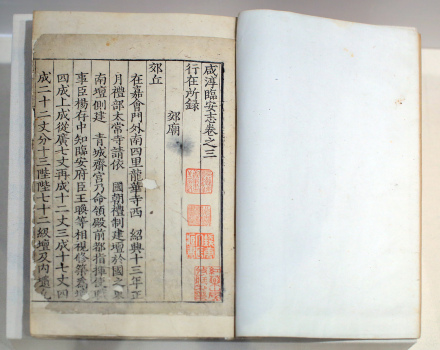 咸淳臨安志卷之三
行在所錄
郊廟
郊丘
在嘉會門外南四里龍華寺西 紹興十三年正
月禮部太常寺請依 國朝禮制建壇於國之東
南壇側建 青城齋宮乃命領殿前都指揮使職
事臣楊存中知臨安府臣王㬇等相視修築為壇
四成上成從廣七丈再成十二丈三成十七丈四
成二十二丈分十三陛陛七十二級壇及內壝凡